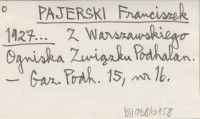 PAJERSKI Franciszek
1927... Z Warszawskiego
Ogniska Związku Podhalan.
— Gaz. Podh. 15, nr 16.